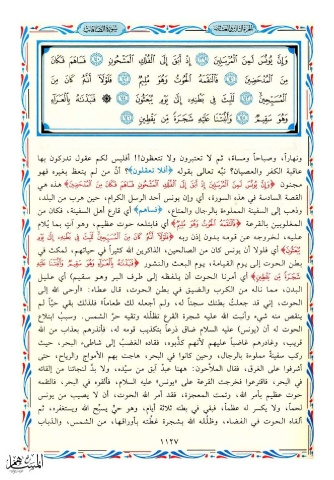 وَإِنَّ يُونُسَ لَمِنَ الْمُرْسَلِينَ ١٣٩ إِذْ أَبَقَ إِلَى الْفُلْكِ الْمَشْحُونِ ١٤٠ فَسَاهَمَ فَكَانَ
مِنَ الْمُدْحَضِينَ ١٤١ فَالْتَقَمَهُ الْحُوتُ وَهُوَ مُلِيمٌ ١٤٢ فَلَوْلَا أَنَّهُ كَانَ مِنَ
الْمُسَبِّحِينَ ١٤٣ لَلَبِثَ فِي بَطْنِهِ إِلَى يَوْمِ يُبْعَثُونَ ١٤٤ فَنَبَذْنَاهُ بِالْعَرَاءِ
وَهُوَ سَقِيمٌ ١٤٥ وَأَنْبَتْنَا عَلَيْهِ شَجَرَةً مِنْ يَقْطِينٍ ١٤٦
ونهاراً، وصباحاً ومساءً، ثم لا تعتبرون ولا تتعظون!! أفليس لكم عقول تدركون بها
عاقبة الكفر والعصيان؟ نبَّه تعالى بقوله ﴿أفلا تعقلون﴾؟ أنَّ من لم يتعظ بغيره فهو
مجنون ﴿وَإِنَّ يُونُسَ لَمِنَ الْمُرْسَلِينَ إِذْ أَبَقَ إِلَى الْفُلْكِ الْمَشْحُونِ فَسَاهَمَ فَكَانَ مِنَ الْمُدْحَضِينَ﴾ هذه هي
القصة السادسة في هذه السورة، أي وإن يونس أحد الرسل الكرام، حين هرب من البلد،
وذهب إلى السفينة المملوءة بالرجال والمتاع، ﴿فساهم﴾ أي قارع أهل السفينة، فكان من
المغلوبين بالقرعة ﴿فَالْتَقَمَهُ الْحُوتُ وَهُوَ مُلِيمٌ﴾ أي فابتلعه حوت عظيم، وهو آتٍ بما يُلام
عليه، لخروجه عن قومه بدون إذن ربه ﴿فَلَوْلَا أَنَّهُ كَانَ مِنَ الْمُسَبِّحِينَ لَلَبِثَ فِي بَطْنِهِ إِلَى يَوْمِ
يُبْعَثُونَ﴾ أي فلولا أن يونس كان من الصالحين، الذاكرين الله كثيراً في حياتهم، لمكث في
بطن الحوت إلى يوم القيامة، يوم البعث والنشور ﴿فَنَبَذْنَاهُ بِالْعَرَاءِ وَهُوَ سَقِيمٌ وَأَنْبَتْنَا عَلَيْهِ
شَجَرَةً مِنْ يَقْطِينٍ﴾ أي أمرنا الحوت أن يلفظه إلى طرف البر ﴿وهو سقيم﴾ أي عليل
البدن، مما ناله من الكرب والضيق في بطن الحوت، قال عطاء: «أوحى الله إلى
الحوت، إني قد جعلتُ بطنك سجناً له، ولم أجعله لك طعاماً» فلذلك بقي حيّاً لم
ينقص منه شيء، وأنبت الله عليه شجرة القرع تظلّله وتقيه حرَّ الشمس. وسببُ ابتلاع
الحوت له أن (يونس) عليه السلام ضاق ذرعاً بتكذيب قومه له، فأنذرهم بعذاب من الله
قريب، وغادرهم غاضباً عليهم لأنهم كذَّبوه، فقاده الغضبُ إلى شاطىء البحر، حيث
ركب سفينة مملوءة بالرجال، وحين كانوا في البحر، هاجت بهم الأمواج والرياح، حتى
أشرفوا على الغرق، فقال الملّاحون: ههنا عبدٌ آبق من سيّده، ولا بدَّ لنجاتنا من إلقائه
في البحر، فاقترعوا فخرجت القرعة على «يونس» عليه السلام، فألقوه في البحر، فالتقمه
حوت عظيم بأمر الله، وتمت المعجزة، فقد أمر الله الحوت، أن لا يصيب من يونس
لحماً، ولا يكسر له عظماً، فبقي في بطنه ثلاثة أيام، وهو حيٌّ يسبِّح الله ويستغفره، ثم
ألقاه الحوت في الفضاء، وظلَّله الله بشجرة غطَّته بأوراقها، من الشمس، والذباب
١١٢٧